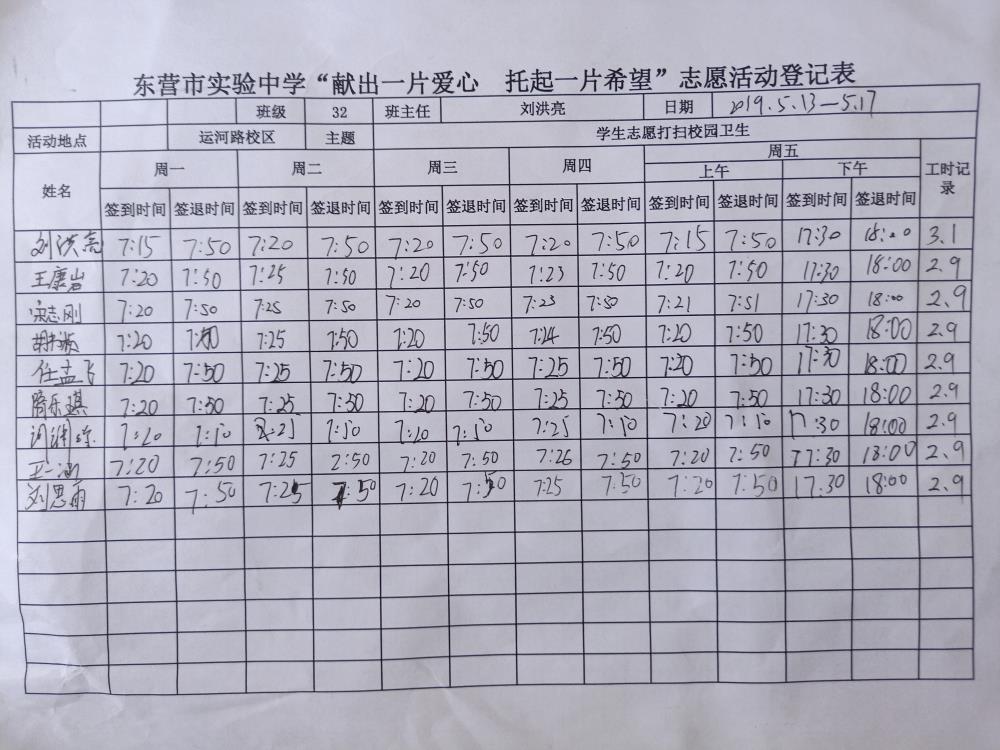 东营市实验中学“献出一片爱心 托起一片希望”志愿活动登记表
班级 32 班主任 刘洪亮 日期 2019.5.13—5.17
活动地点 运河路校区 主题 学生志愿打扫校园卫生
姓名 周一 周二 周三 周四 周五 工时记录
上午 下午
签到时间 签退时间 签到时间 签退时间 签到时间 签退时间 签到时间 签退时间 签到时间 签退时间 签到时间 签退时间
刘洪亮 7:15 7:50 7:20 7:50 7:20 7:50 7:20 7:50 7:15 7:50 17:30 18:00 3.1
王康岩 7:20 7:50 7:25 7:50 7:20 7:50 7:23 7:50 7:20 7:50 17:30 18:00 2.9
宋志刚 7:20 7:50 7:25 7:50 7:20 7:50 7:23 7:50 7:21 7:51 17:30 18:00 2.9
7:20 7:50 7:25 7:50 7:20 7:50 7:24 7:50 7:20 7:50 17:30 18:00 2.9
任孟飞 7:20 7:50 7:25 7:50 7:20 7:50 7:25 7:50 7:20 7:50 17:30 18:00 2.9
乐琪 7:20 7:50 7:25 7:50 7:20 7:50 7:25 7:50 7:20 7:50 17:30 18:00 2.9
7:20 7:50 7:25 7:50 7:20 7:50 7:25 7:50 7:20 7:50 17:30 18:00 2.9
王一涵 7:20 7:50 7:25 2:50 7:20 7:50 7:26 7:50 7:20 7:50 17:30 18:00 2.9
刘思雨 7:20 7:50 7:25 7:50 7:20 7:50 7:25 7:50 7:20 7:50 17:30 18:00 2.9